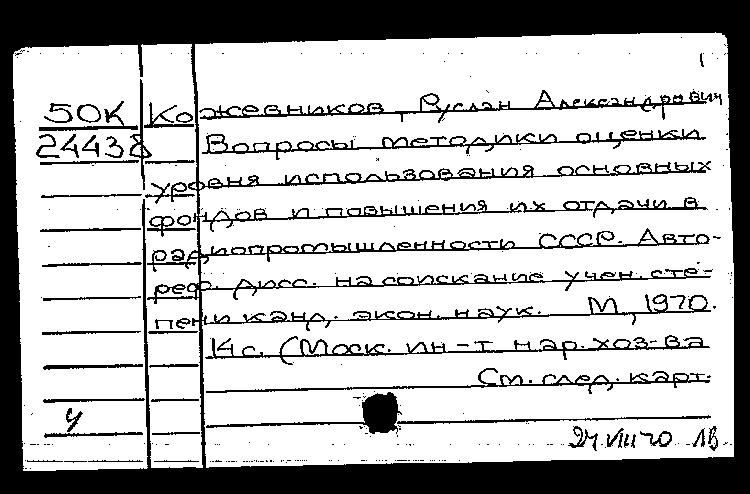 1
50К Кожевников, Руслан Александрович
24438 Вопросы методики оценки
уровня использования основных
фондов и повышения их отдачи в
радиопромышленности СССР. Авто-
реф. дисс. на соискание учен. сте-
пени канд. экон. наук. М, 1970.
14 с. (Моск. ин-т нар. хоз-ва
См. след. карт.
у
24 VIII 70 1В